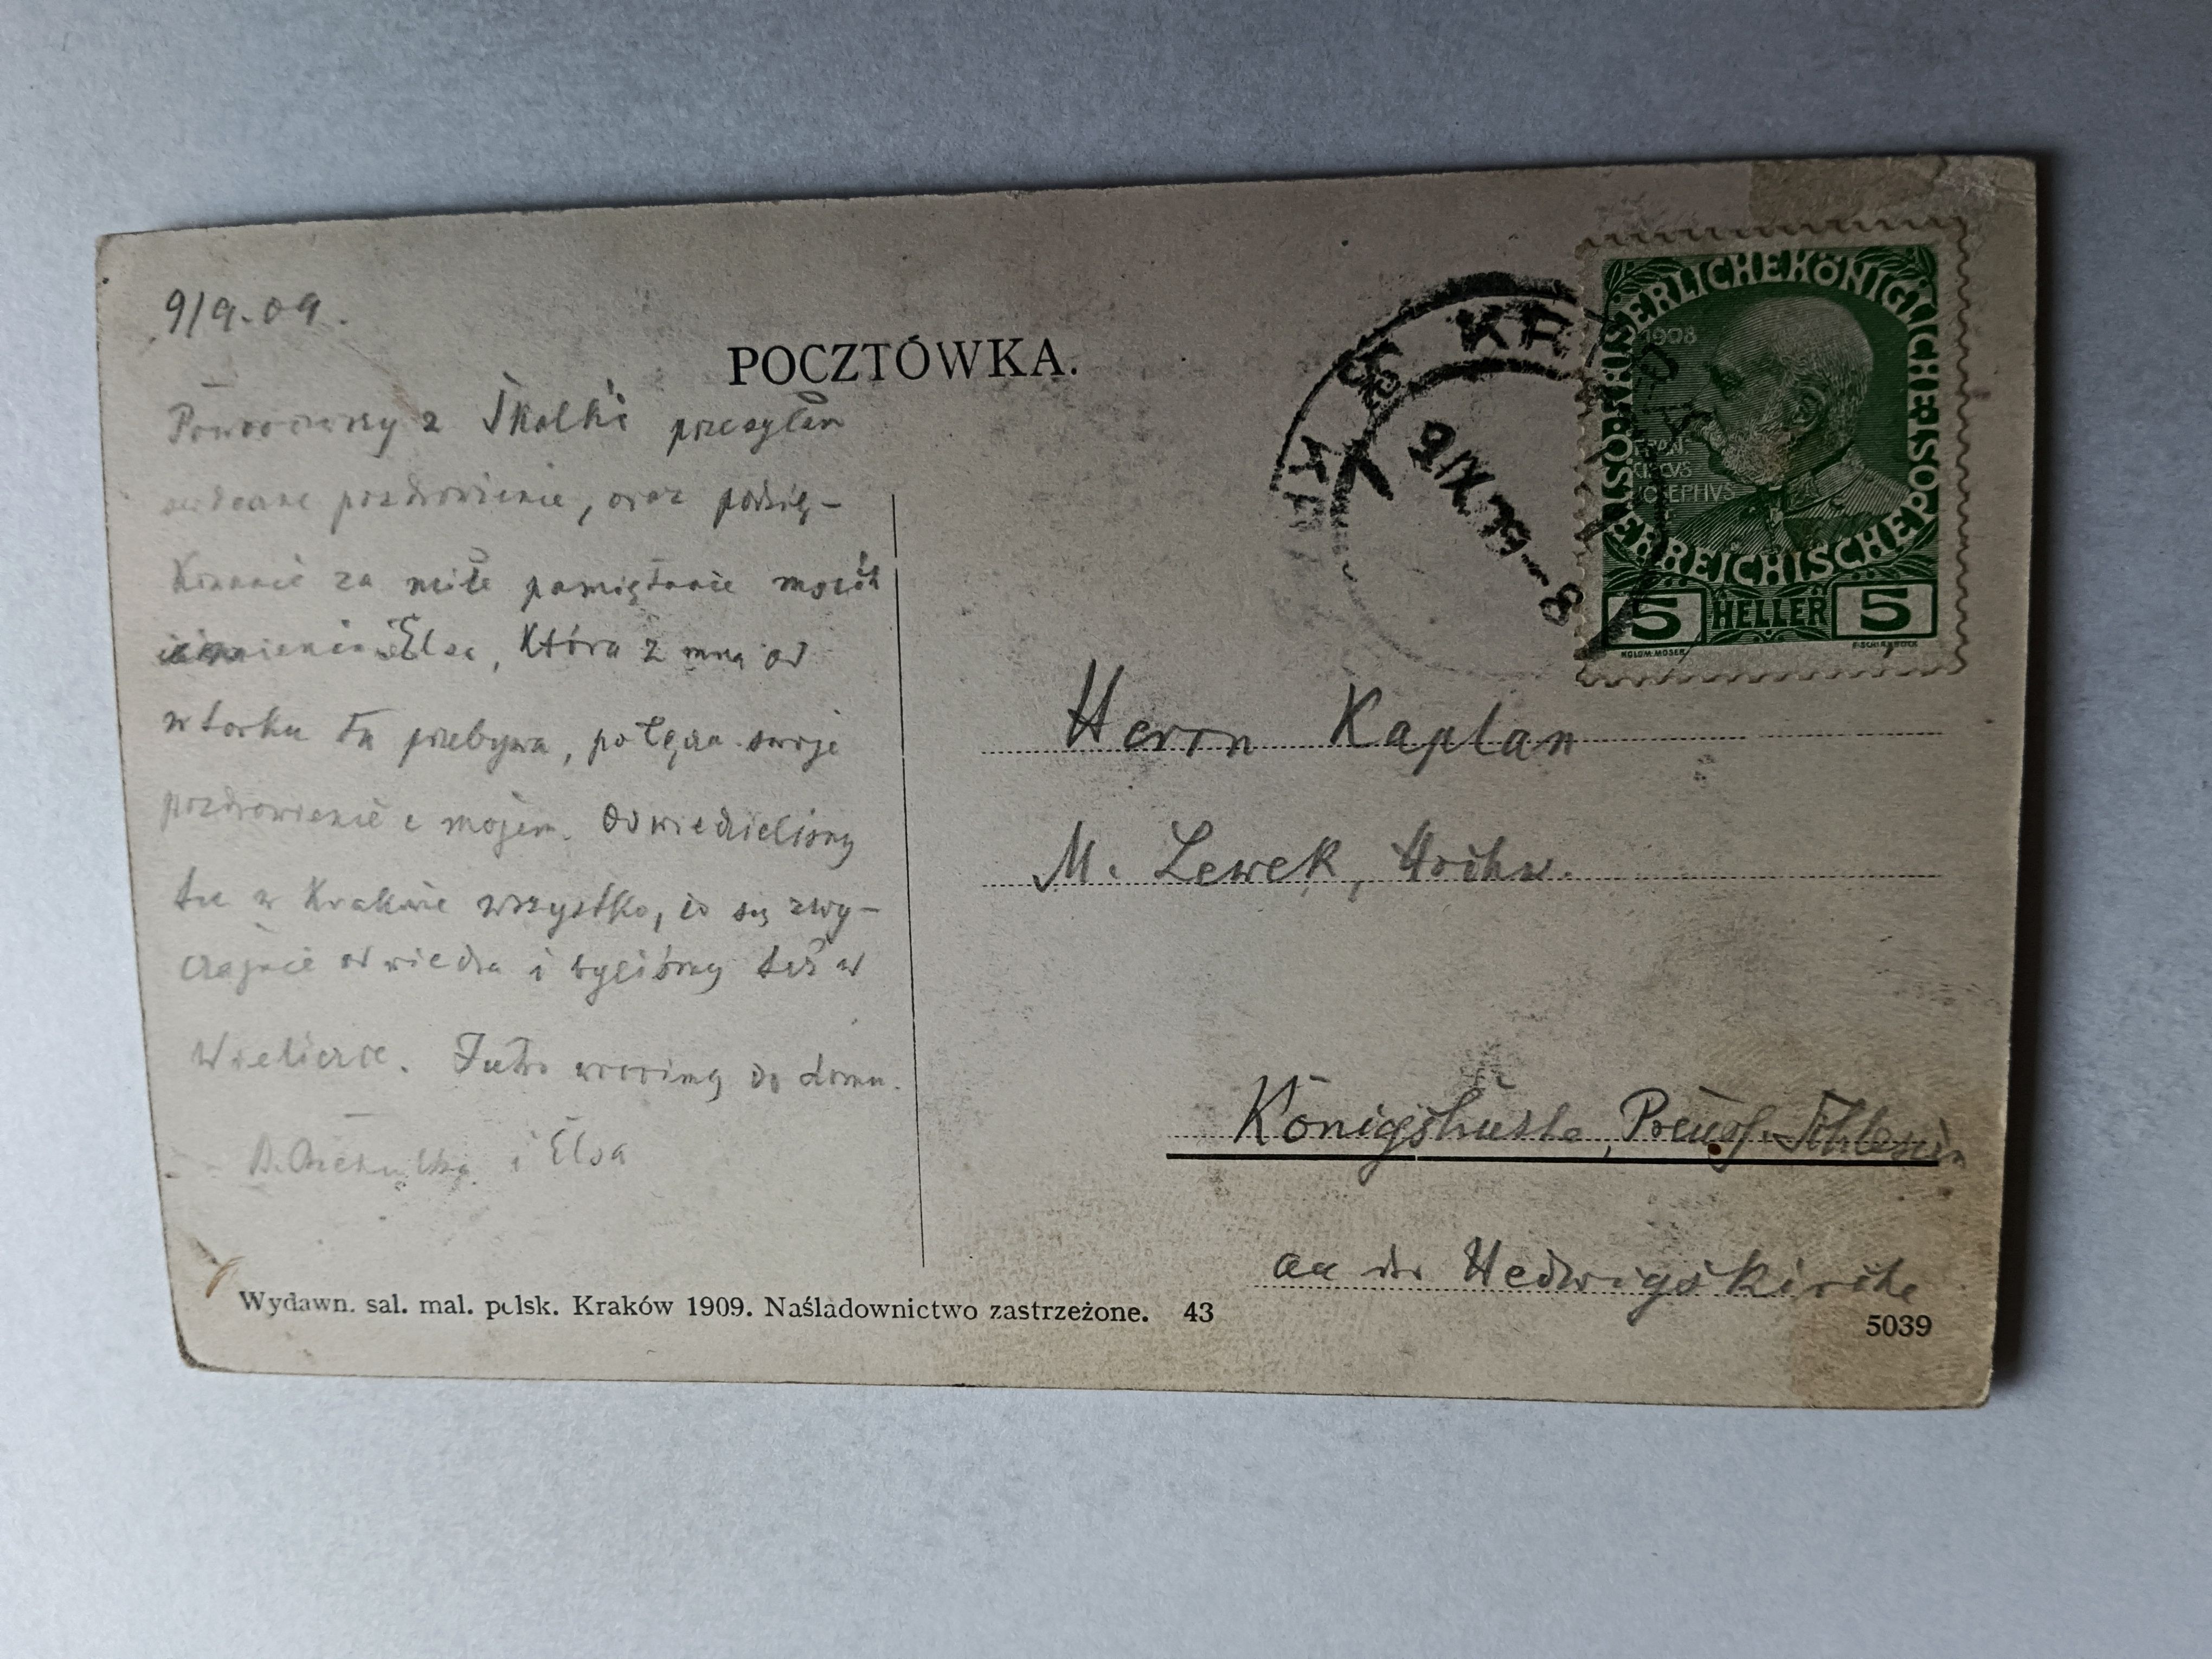 9/9.09.
POCZTÓWKA.
Powróciwszy z Skałki przesyłam
serdeczne pozdrowienie, oraz podzię-
kowanie za miłe pamiętanie moich
imienin. Elsa, która z mną od
wtorku tu przebywa, połącza swoje
pozdrowienie z mojem. Odwiedzieliśmy
tu w Krakowie wszystko, co się zwy-
czajnie odwiedza i byliśmy też w
Wieliczce. Jutro wrócimy do domu.
i Elsa
KRAKÓW
9/IX 09-8
KAISERLICHE KÖNIGLICHE ÖSTERREICHISCHE POST
1908
FRANCISCVS JOSEPHVS
5 HELLER 5
KOLOM. MOSER
F. SCHIRNBÖCK
Herrn Kaplan
M. Lewek, Hochw.
Königshütte, Preuss. Schlesien
an der Hedwigskirche
Wydawn. sal. mal. polsk. Kraków 1909. Naśladownictwo zastrzeżone. 43
5039